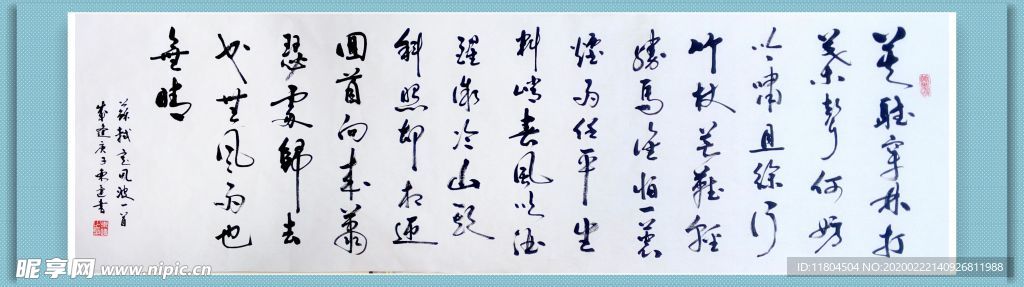 莫聽穿林打
葉聲何妨
吟嘯且徐行
竹杖芒鞋輕
勝馬誰怕一蓑
煙雨任平生
料峭春風吹酒
醒微冷山頭
斜照却相迎
回首向來蕭
瑟處歸去
也無風雨也
無晴
蘇軾定風波一首
歲庚子東建書
昵享网 www.nipic.cn
ID:11804504 NO:20200222140926811988